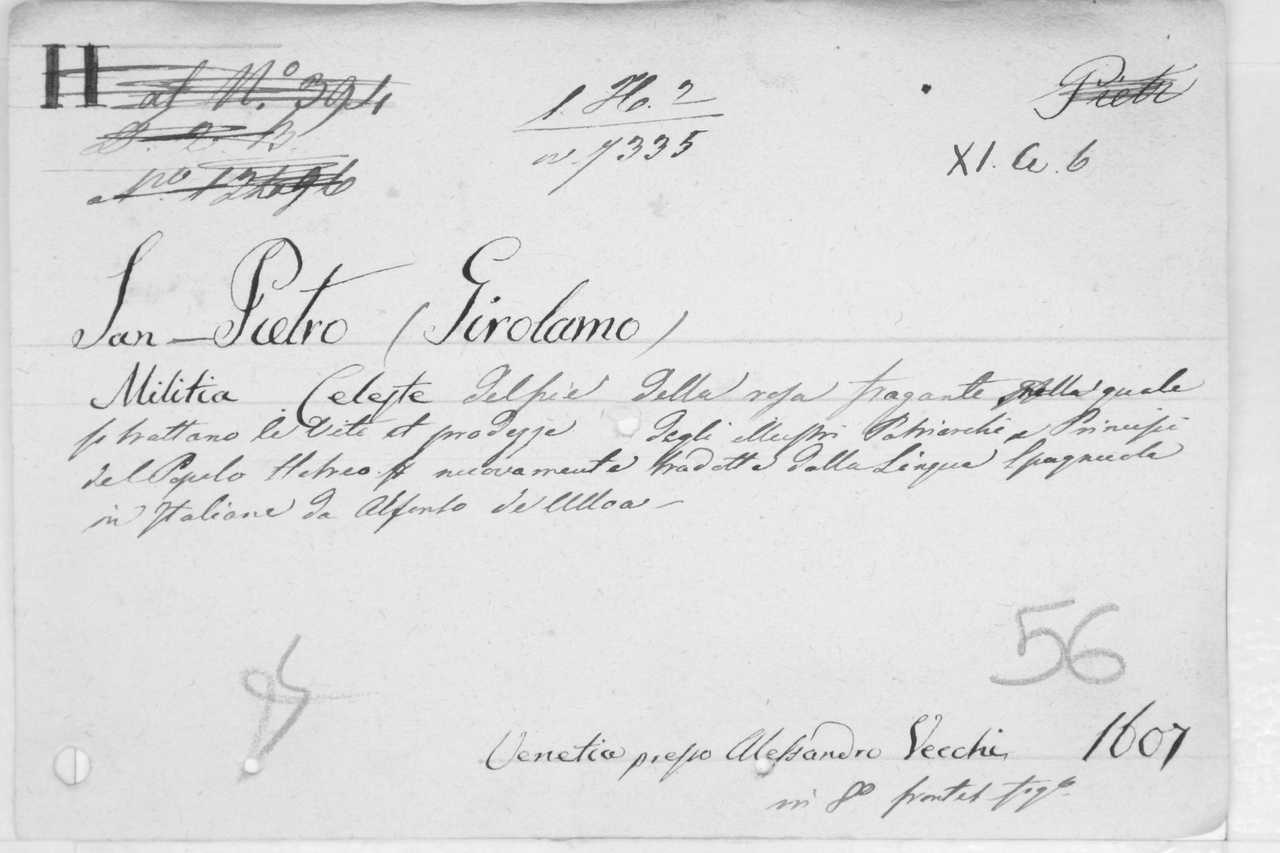 H at N.º 394
1. Ho. 2
Pietr
n. 7335
XI. A. 6
San-Pietro (Girolamo)
Militia Celeste del piè della rosa fragante, nella quale
si trattano le Vite et prodezze degli illustri Patriarchi e Principi
del Popolo Hebreo nuovamente tradotta dalla Lingua Spagnuola
in Italiano da Alfonso de Ulloa -
56
Venetia presso Alessandro Vecchi, 1607
in 8º frontes. fig.